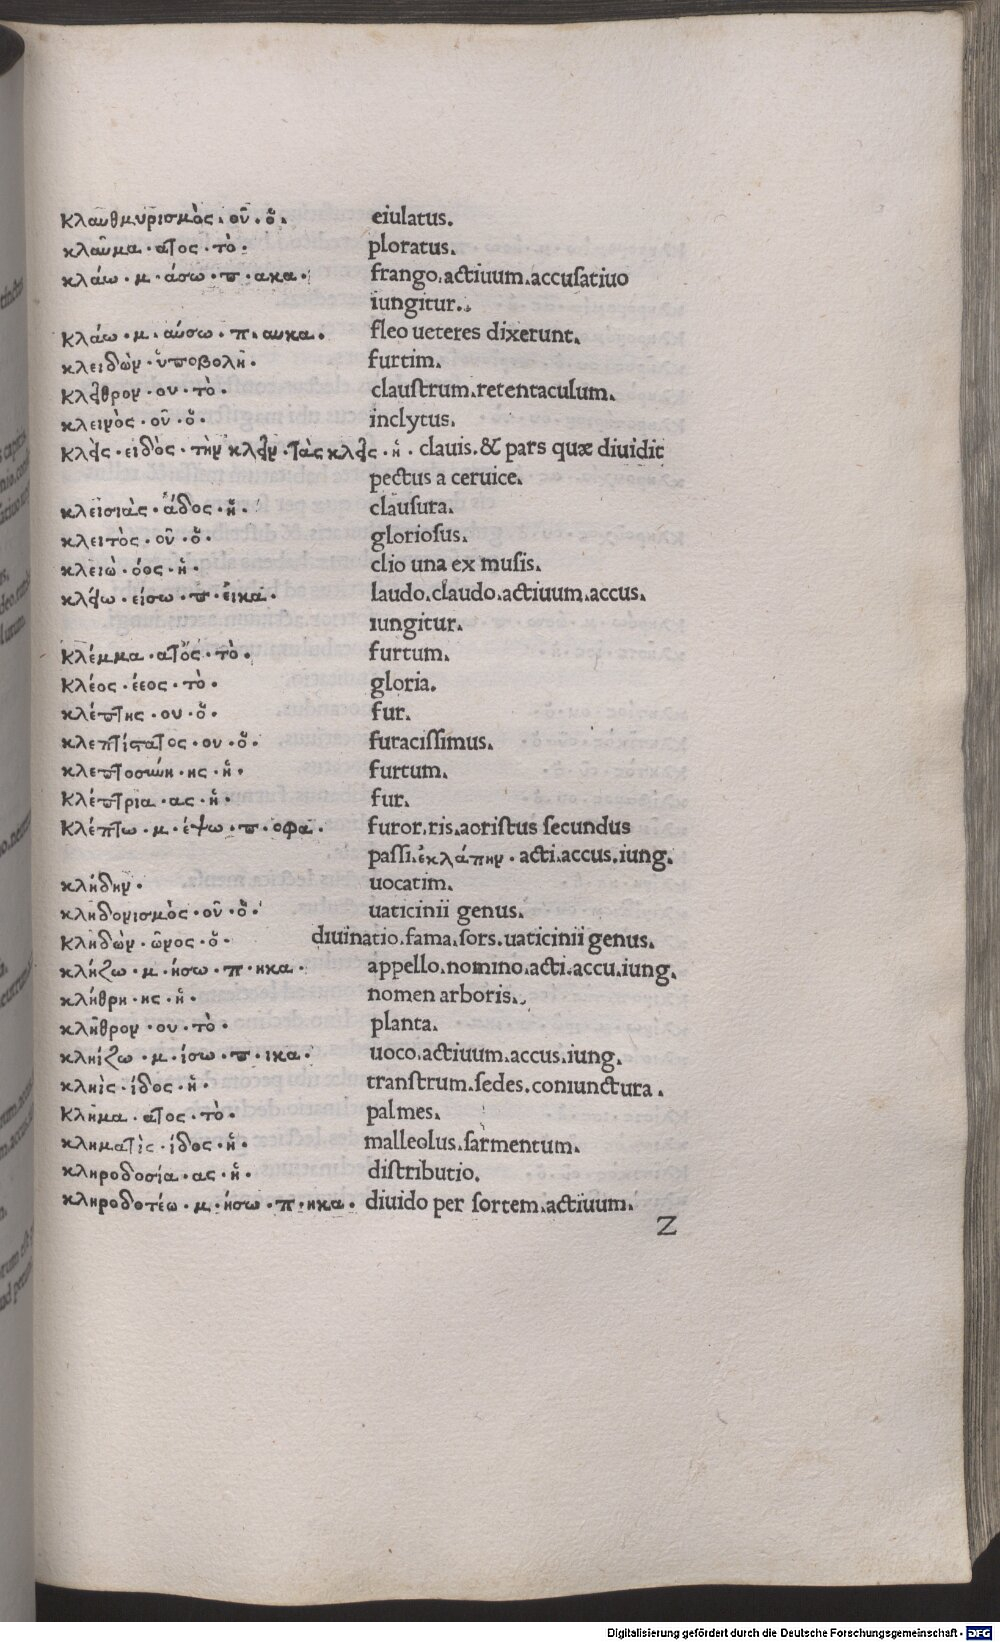 κλαυθμυρισμὸς·οῦ·ὁ. eiulatus.
κλαῦμα·ατος·τὸ· ploratus.
κλάω·μ·άσω·π·ακα· frango.actiuum.accuſatiuo
iungitur.
κλάω·μ·αύσω·π·αυκα· fleo ueteres dixerunt.
κλειδὼν·ὑποβολῆ· furtim.
κλεῖθρον·ου·τὸ· clauſtrum.retentaculum.
κλεινὸς·οῦ·ὁ· inclytus.
κλεὶς·ειδὸς·τὴν κλεῖν·τὰς κλεῖς·ἡ· clauis.& pars quæ diuidit
pectus a ceruice.
κλεισιὰς·άδος·ἡ· clauſura.
κλειτὸς·οῦ·ὁ· glorioſus.
κλειὼ·όος·ἡ· clio una ex muſis.
κλείω·είσω·π·εικα· laudo.claudo.actiuum.accus.
iungitur.
κλέμμα·ατος·τὸ· furtum.
κλέος·έεος·τὸ· gloria.
κλέπτης·ου·ὁ· fur.
κλεπτίστατος·ου·ὁ· furaciſſimus.
κλεπτοσύνη·ης·ἡ· furtum.
κλέπτρια·ας·ἡ· fur.
κλέπτω·μ·έψω·π·οφα· furor.ris.aoriſtus ſecundus
paſſi.ἐκλάπην·acti.accus.iung.
κλήδην· uocatim.
κληδονισμὸς·οῦ·ὁ· uaticinii genus.
κληδὼν·ῶνος·ὁ· diuinatio.fama.ſors.uaticinii genus.
κλήζω·μ·ήσω·π·ηκα· appello.nomino.acti.accu.iung.
κλήθρη·ης·ἡ· nomen arboris.
κλῆθρον·ου·τὸ· planta.
κληίζω·μ·ίσω·π·ικα· uoco.actiuum.accus.iung.
κληὶς·ίδος·ἡ· tranſtrum.ſedes.coniunctura.
κλῆμα·ατος·τὸ· palmes.
κληματὶς·ίδος·ἡ· malleolus.ſarmentum.
κληροδοσία·ας·ἡ· diſtributio.
κληροδοτέω·μ·ήσω·π·ηκα· diuido per ſortem.actiuum.
Z
Digitalisierung gefördert durch die Deutsche Forschungsgemeinschaft - DFG